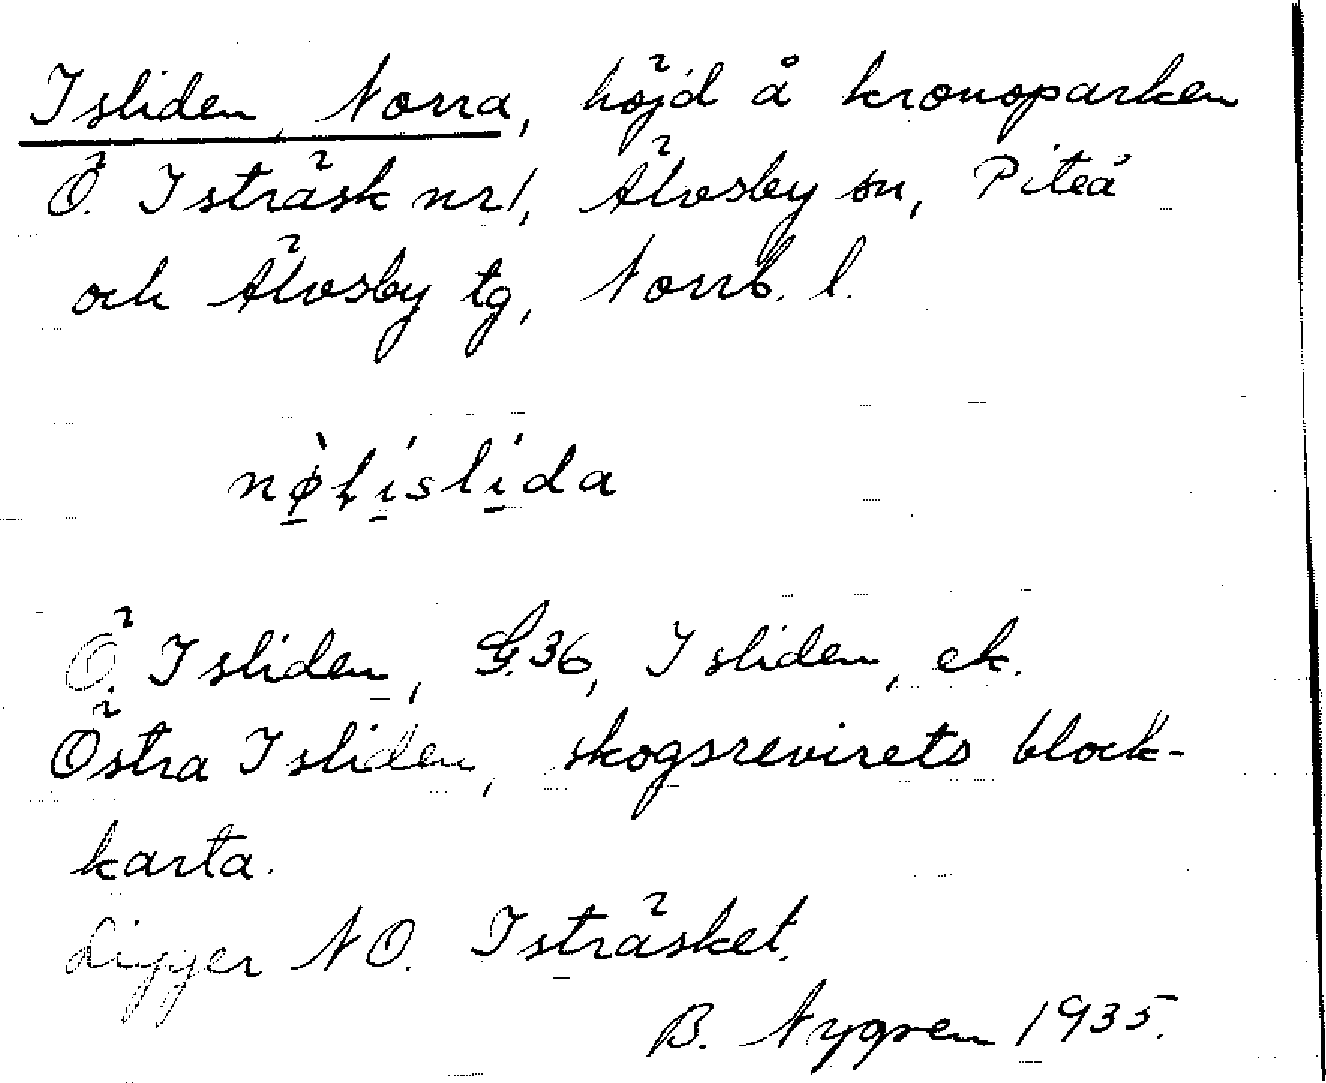 Isliden, Norra, höjd å kronoparken
Ö. Isträsk nr 1, Älvsby sn, Piteå
och Älvsby tg, Norrb. l.
nø̱̀ɬí̱slí̱da
Ö. Isliden, G.36, Isliden, ek.
Östra Isliden, skogsrevirets block-
karta.
Ligger NO. Isträsket.
B. Nygren 1935.